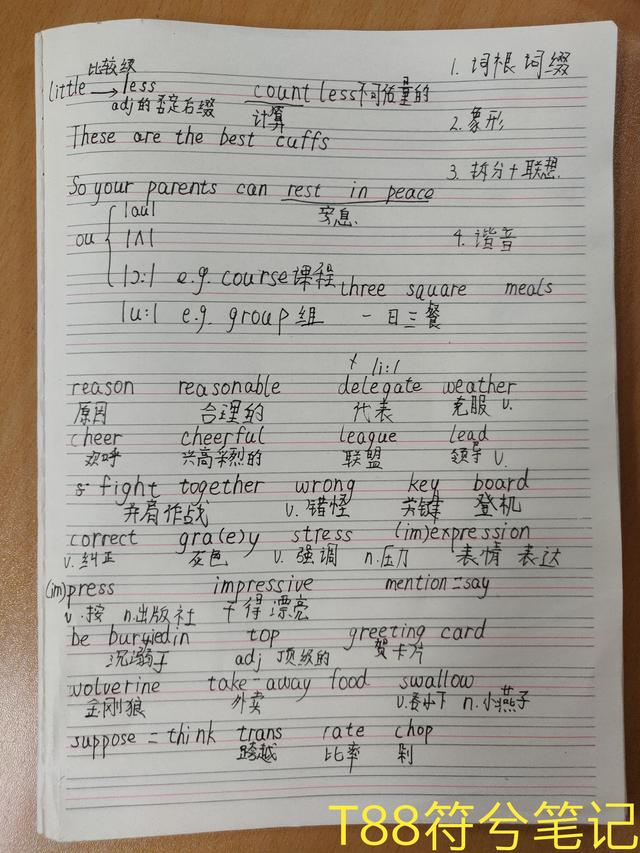 比较级 1. 词根词缀
little → less countless不可估量的
adj的否定右缀 计算
2. 象形
These are the best cuffs
3. 拆分+联想.
So your parents can rest in peace
安息.
ou { |au|
|ʌ| 4. 谐音
|ɔ:| e.g. course课程 three square meals
|u:| e.g. group组 一日三餐
+ |i:|
reason reasonable delegate weather
原因 合理的 代表 克服 v.
cheer cheerful league lead
欢呼 兴高采烈的 联盟 领导 v.
fight together wrong key board
并肩作战 v. 错怪 关键 登机
correct gra(e)y stress (im)expression
v.纠正 灰色 v. 强调 n.压力 表情 表达
(im)press impressive mention=say
v.按 n.出版社 干得漂亮
be buryiedin top greeting card
沉溺于 adj 顶级的 贺卡片
wolverine take-away food swallow
金刚狼 外卖 v.吞下 n.小燕子
suppose = think trans rate chop
跨越 比率 剁
T88符兮笔记